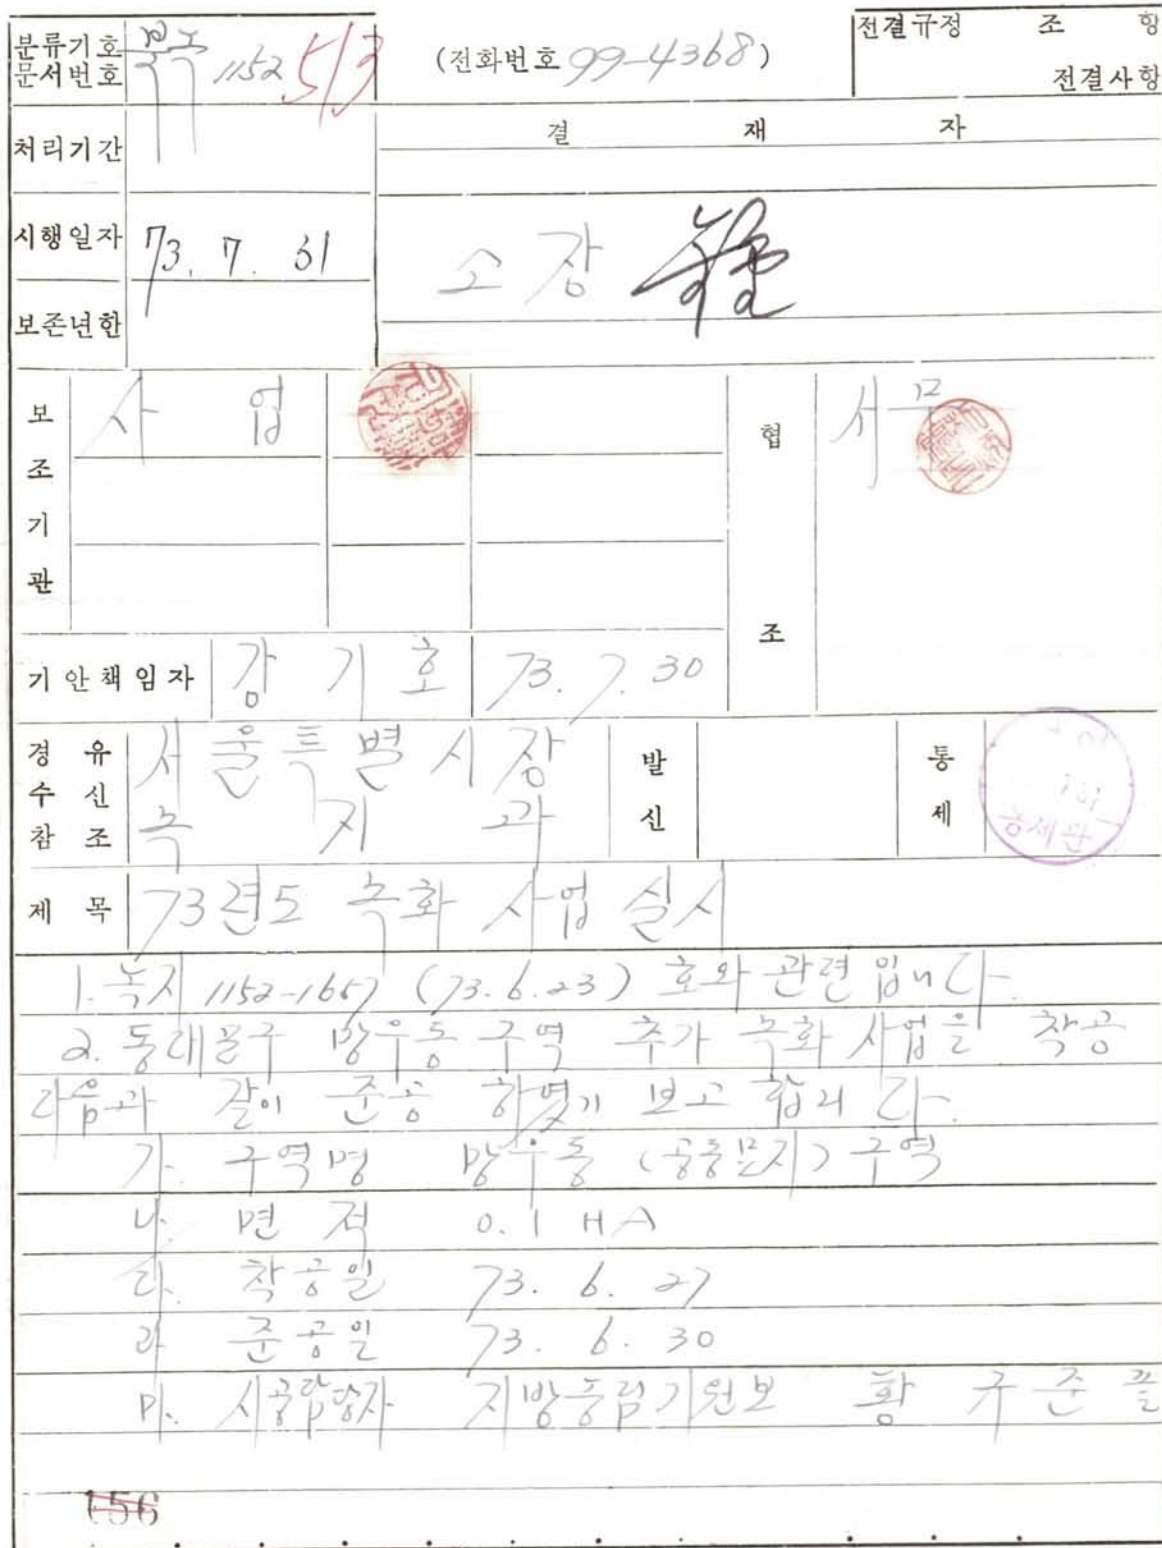 분류기호
문서번호 1152 513 (전화번호 99-4368) 전결규정 조 항
전결사항
처리기간 결 재 자
시행일자 73. 7. 31 소장
보존년한
보조기관 사업 협조 서무
기안책임자 강기호 73. 7. 30
경유 서울특별시장 발신 통제
수신
참조 녹지과
제목 73년도 녹화 사업 실시
1. 녹지 1152-1657 (73.6.23) 호와 관련 입니다.
2. 동대문구 망우동 구역 추가 녹화 사업을 착공
다음과 같이 준공 하였기 보고 합니다.
가. 구역명 망우동 (공동묘지) 구역
나. 면적 0.1 HA
다. 착공일 73. 6. 27
라. 준공일 73. 6. 30
마. 시공담당자 지방농림기원보 황규준 끝
156